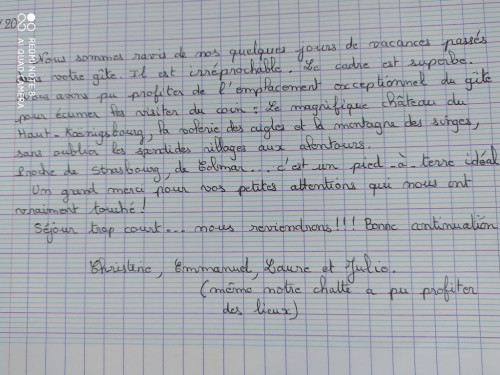 20
Nous sommes ravis de nos quelques jours de vacances passés
dans votre gîte. Il est irréprochable. Le cadre est superbe.
Nous avons pu profiter de l'emplacement exceptionnel du gîte
pour écumer les visites du coin : Le magnifique château du
Haut-Koenigsbourg, la volerie des aigles et la montagne des singes,
sans oublier les splendides villages aux alentours.
Proche de Strasbourg, de Colmar... c'est un pied-à-terre idéal
Un grand merci pour vos petites attentions qui nous ont
vraiment touché !
Séjour trop court... nous reviendrons !!! Bonne continuation
Christine, Emmanuel, Laure et Julie.
(même notre chatte a pu profiter
des lieux)
REDMI NOTE 8T
AI QUAD CAMERA